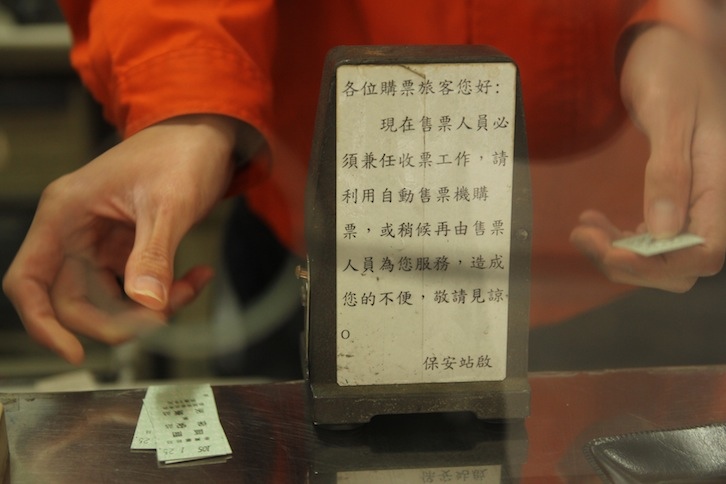 各位購票旅客您好:
現在售票人員必
須兼任收票工作，請
利用自動售票機購
票，或稍候再由售票
人員為您服務，造成
您的不便，敬請見諒
。
保安站啟